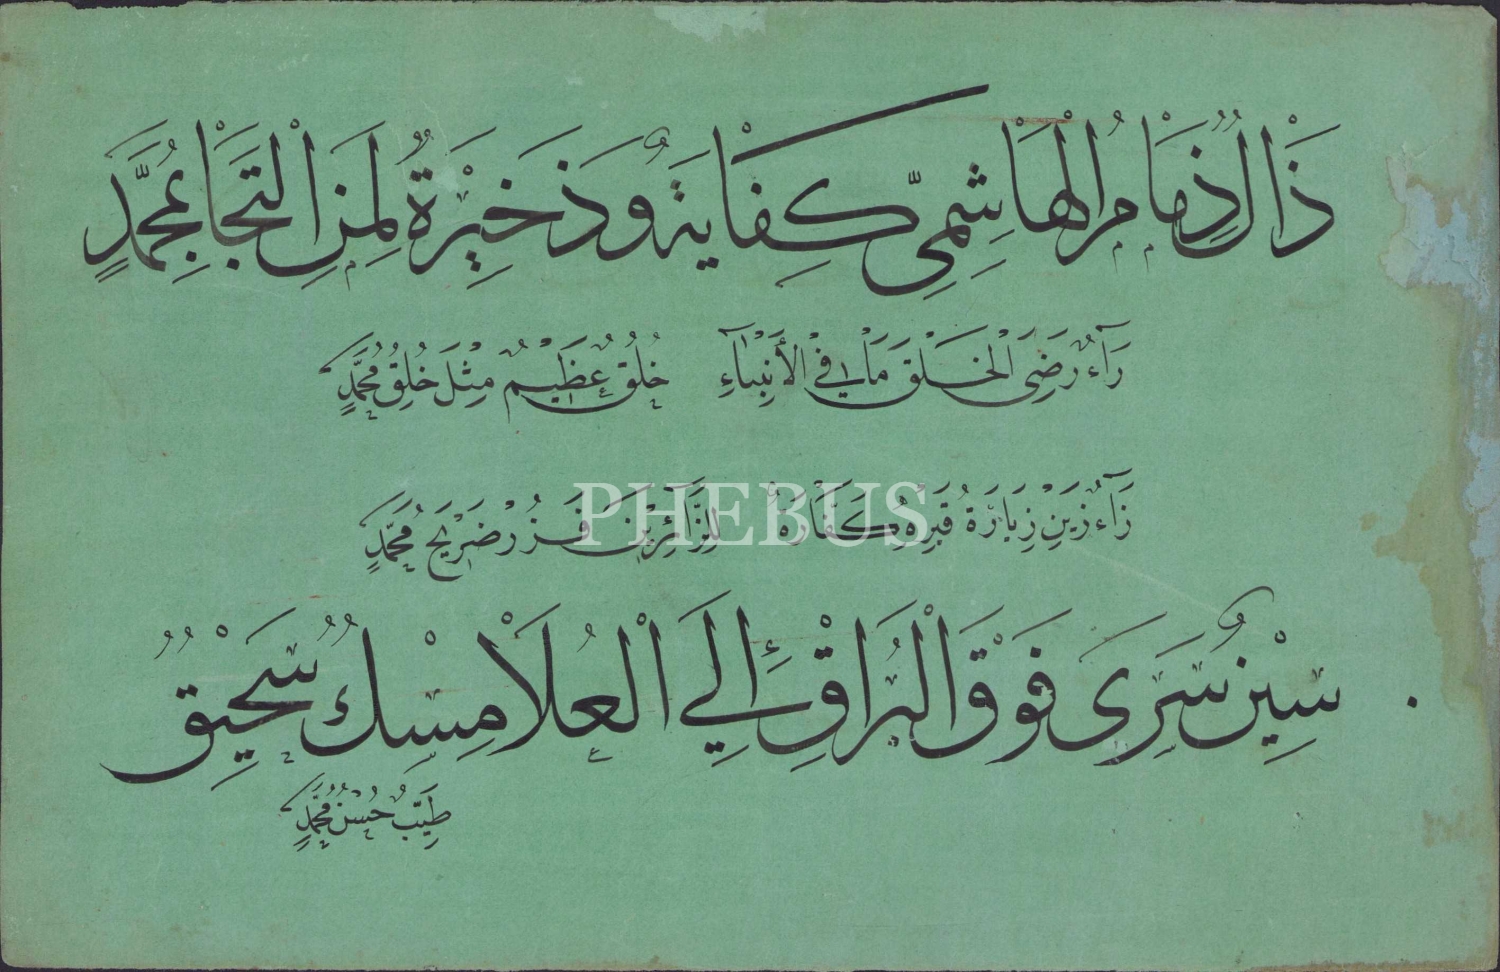 ذَالٌ ذِمَامُ الْهَاشِمِيِّ كِفَايَةٌ وَذَخِيْرَةٌ لِمَنِ الْتَجَا بِمُحَمَّدٍ
رَآءٌ رَضِيَ الْخَلْقَ مَا فِي الْأَنْبِيَآءِ خُلُقٌ عَظِيْمٌ مِثْلَ خُلُقِ مُحَمَّدٍ
زَآءٌ زَيْنِ زِيَارَةُ قَبْرِهِ كَفَّارَةٌ لِلزَّائِرِيْنَ فَزُرْ ضَرِيْحَ مُحَمَّدٍ
PHEBUS
سِيْنٌ سَرَى فَوْقَ الْبُرَاقِ إِلَى الْعُلَا مِسْكٌ سَحِيْقٌ
طَيِّبٌ حُسْنُ مُحَمَّدٍ